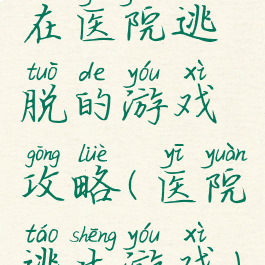 在医院逃
tuō de yóu xì
脱的游戏
gōng lüè yī yuàn
攻略(医院
táo shēng yóu xì
逃生游戏)